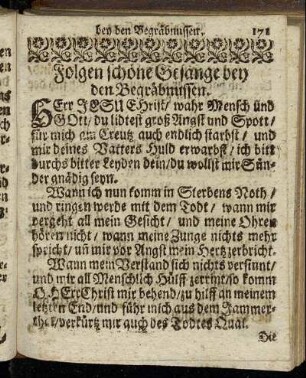 bey den Begräbnussen. 171
Folgen schöne Gesänge bey
den Begräbnussen.
HErr JESU Christ / wahr Mensch und
GOtt / du lidtest groß Angst und Spott /
für mich am Creutz auch endlich starbst / und
mir deines Vatters Huld erwarbst / ich bitt
durchs bitter Leyden dein / du wollst mir Sün-
der gnädig seyn.
Wann ich nun komm in Sterbens Noth /
und ringen werde mit dem Todt / wann mir
vergeht all mein Gesicht / und meine Ohren
hören nicht / wann meine Zunge nichts mehr
spricht / un mir vor Angst mein Hertz zerbricht.
Wann mein Verstand sich nichts versinnt /
und mir all Menschlich Hülff zerrint / so komm
O HErr Christ mir behend / zu hilff an meinem
letzten End / und führ mich aus dem Jammer-
thal / verkürtz mir auch des Todtes Qual.
Die